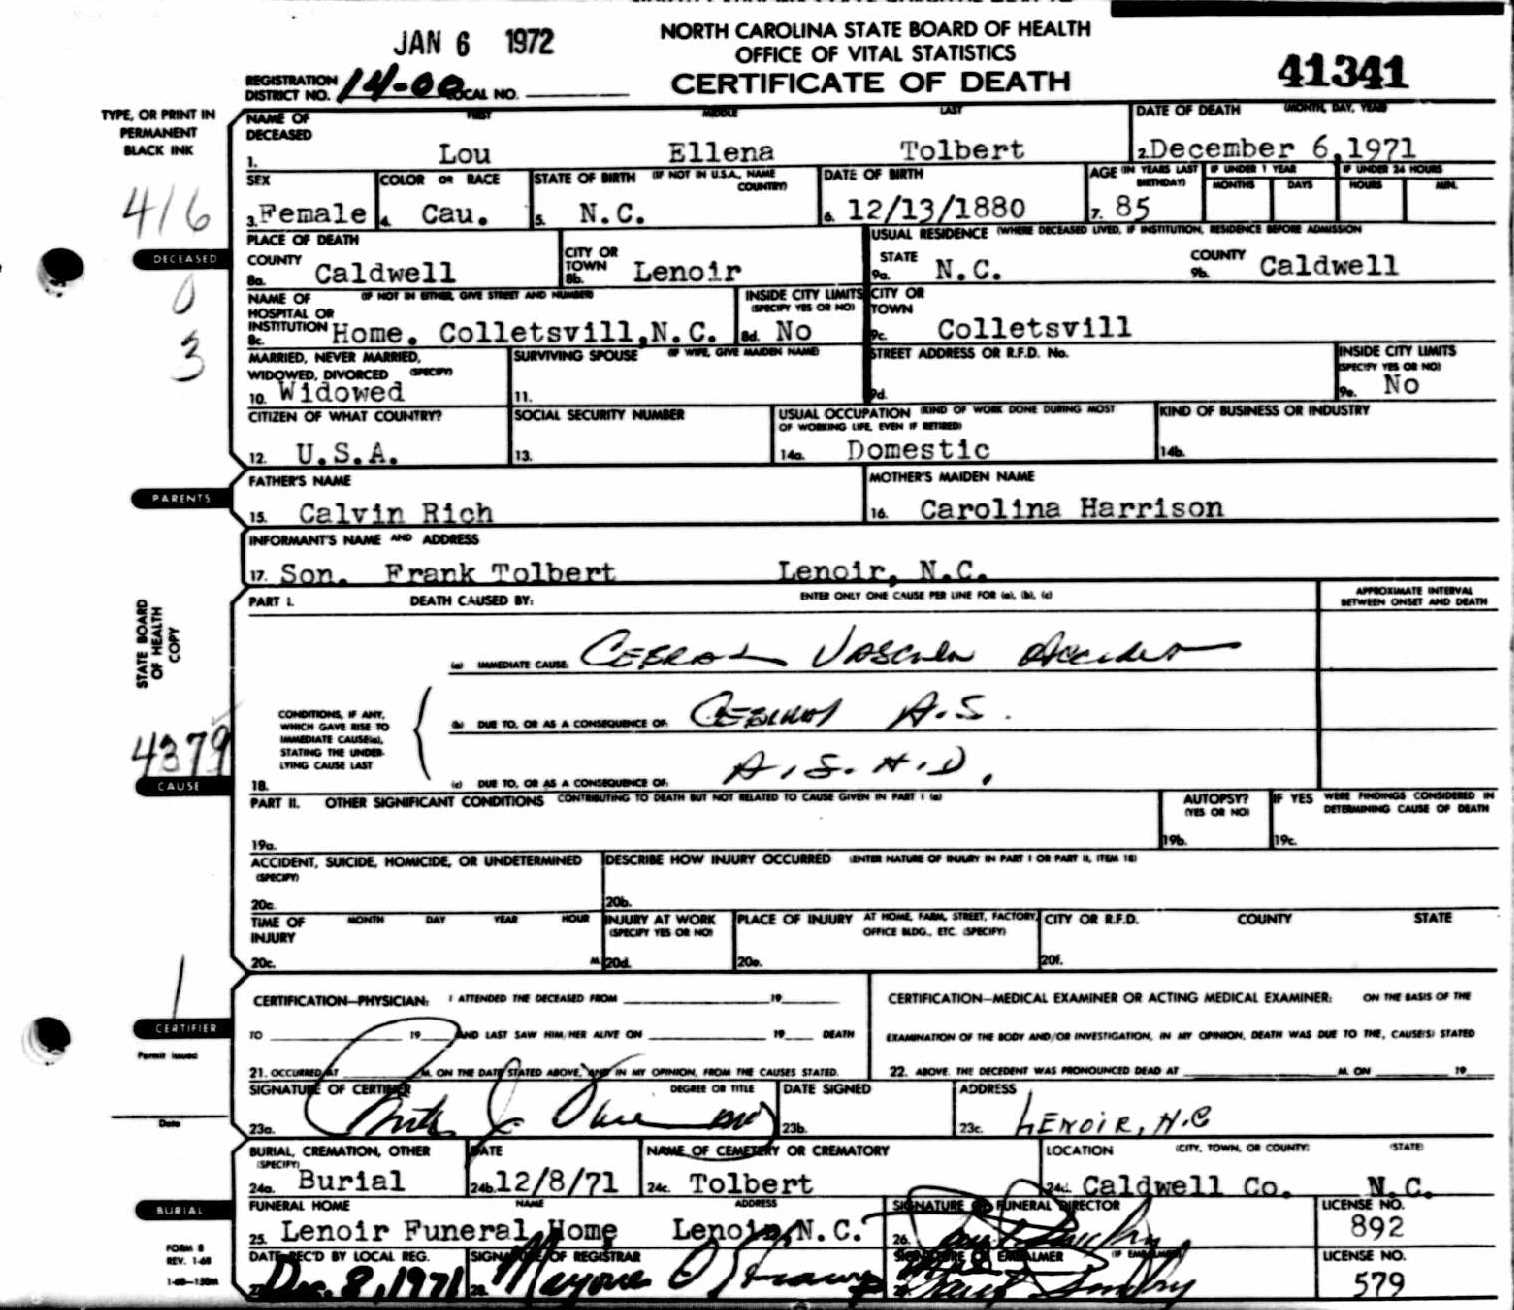 JAN 6 1972
NORTH CAROLINA STATE BOARD OF HEALTH
OFFICE OF VITAL STATISTICS
CERTIFICATE OF DEATH
41341
REGISTRATION DISTRICT NO. 14-00 LOCAL NO.
TYPE, OR PRINT IN
PERMANENT
BLACK INK
NAME OF DECEASED FIRST MIDDLE LAST DATE OF DEATH (MONTH, DAY, YEAR)
1. Lou Ellena Tolbert 2. December 6, 1971
SEX COLOR OR RACE STATE OF BIRTH (IF NOT IN U.S.A., NAME COUNTRY) DATE OF BIRTH AGE (IN YEARS LAST BIRTHDAY) IF UNDER 1 YEAR MONTHS DAYS IF UNDER 24 HOURS HOURS MIN.
3. Female 4. Cau. 5. N.C. 6. 12/13/1880 7. 85
416
DECEASED
0
3
PLACE OF DEATH USUAL RESIDENCE (WHERE DECEASED LIVED, IF INSTITUTION, RESIDENCE BEFORE ADMISSION
COUNTY CITY OR TOWN STATE COUNTY
8a. Caldwell 8b. Lenoir 9a. N.C. 9b. Caldwell
NAME OF HOSPITAL OR INSTITUTION (IF NOT IN EITHER, GIVE STREET AND NUMBER) INSIDE CITY LIMITS (SPECIFY YES OR NO) CITY OR TOWN
8c. Home. Colletsvill, N.C. 8d. No 9c. Colletsvill
MARRIED, NEVER MARRIED, WIDOWED, DIVORCED (SPECIFY) SURVIVING SPOUSE (IF WIFE, GIVE MAIDEN NAME) STREET ADDRESS OR R.F.D. No. INSIDE CITY LIMITS (SPECIFY YES OR NO)
10. Widowed 11. 9d. 9e. No
CITIZEN OF WHAT COUNTRY? SOCIAL SECURITY NUMBER USUAL OCCUPATION (KIND OF WORK DONE DURING MOST OF WORKING LIFE, EVEN IF RETIRED) KIND OF BUSINESS OR INDUSTRY
12. U.S.A. 13. 14a. Domestic 14b.
PARENTS
FATHER'S NAME MOTHER'S MAIDEN NAME
15. Calvin Rich 16. Carolina Harrison
INFORMANT'S NAME AND ADDRESS
17. Son. Frank Tolbert Lenoir, N.C.
STATE BOARD
OF HEALTH
COPY
PART I. DEATH CAUSED BY: ENTER ONLY ONE CAUSE PER LINE FOR (a), (b), (c) APPROXIMATE INTERVAL BETWEEN ONSET AND DEATH
(a) IMMEDIATE CAUSE Cebral Vascular Accident
CONDITIONS, IF ANY,
WHICH GAVE RISE TO
IMMEDIATE CAUSE(a),
STATING THE UNDER-
LYING CAUSE LAST
(b) DUE TO, OR AS A CONSEQUENCE OF: Cebral A.S.
(c) DUE TO, OR AS A CONSEQUENCE OF: A.S.H.D.
18.
4379
CAUSE
PART II. OTHER SIGNIFICANT CONDITIONS CONTRIBUTING TO DEATH BUT NOT RELATED TO CAUSE GIVEN IN PART I (a) AUTOPSY? (YES OR NO) IF YES WERE FINDINGS CONSIDERED IN DETERMINING CAUSE OF DEATH
19a. 19b. 19c.
ACCIDENT, SUICIDE, HOMICIDE, OR UNDETERMINED (SPECIFY) DESCRIBE HOW INJURY OCCURRED (ENTER NATURE OF INJURY IN PART I OR PART II, ITEM 18)
20c. 20b.
TIME OF INJURY MONTH DAY YEAR HOUR INJURY AT WORK (SPECIFY YES OR NO) PLACE OF INJURY AT HOME, FARM, STREET, FACTORY, OFFICE BLDG., ETC. (SPECIFY) CITY OR R.F.D. COUNTY STATE
20c. M. 20d. 20e. 20f.
1
CERTIFIER
Permit Issued
Date
CERTIFICATION—PHYSICIAN: I ATTENDED THE DECEASED FROM 19
TO 19 AND LAST SAW HIM/HER ALIVE ON 19 DEATH
21. OCCURRED AT M. ON THE DATE STATED ABOVE, AND IN MY OPINION, FROM THE CAUSES STATED.
CERTIFICATION—MEDICAL EXAMINER OR ACTING MEDICAL EXAMINER: ON THE BASIS OF THE
EXAMINATION OF THE BODY AND/OR INVESTIGATION, IN MY OPINION, DEATH WAS DUE TO THE, CAUSE(S) STATED
22. ABOVE. THE DECEDENT WAS PRONOUNCED DEAD AT M. ON 19
SIGNATURE OF CERTIFIER DEGREE OR TITLE DATE SIGNED ADDRESS
23a. 23b. 23c. LENOIR, N.C
BURIAL, CREMATION, OTHER (SPECIFY) DATE NAME OF CEMETERY OR CREMATORY LOCATION (CITY, TOWN, OR COUNTY) (STATE)
24a. Burial 24b. 12/8/71 24c. Tolbert 24d. Caldwell Co. N.C.
BURIAL
FUNERAL HOME NAME ADDRESS SIGNATURE OF FUNERAL DIRECTOR LICENSE NO.
25. Lenoir Funeral Home Lenoir, N.C. 26. 892
DATE REC'D BY LOCAL REG. SIGNATURE OF REGISTRAR SIGNATURE OF EMBALMER LICENSE NO.
27. Dec. 8, 1971 28. 579
FORM 8
REV. 1-68